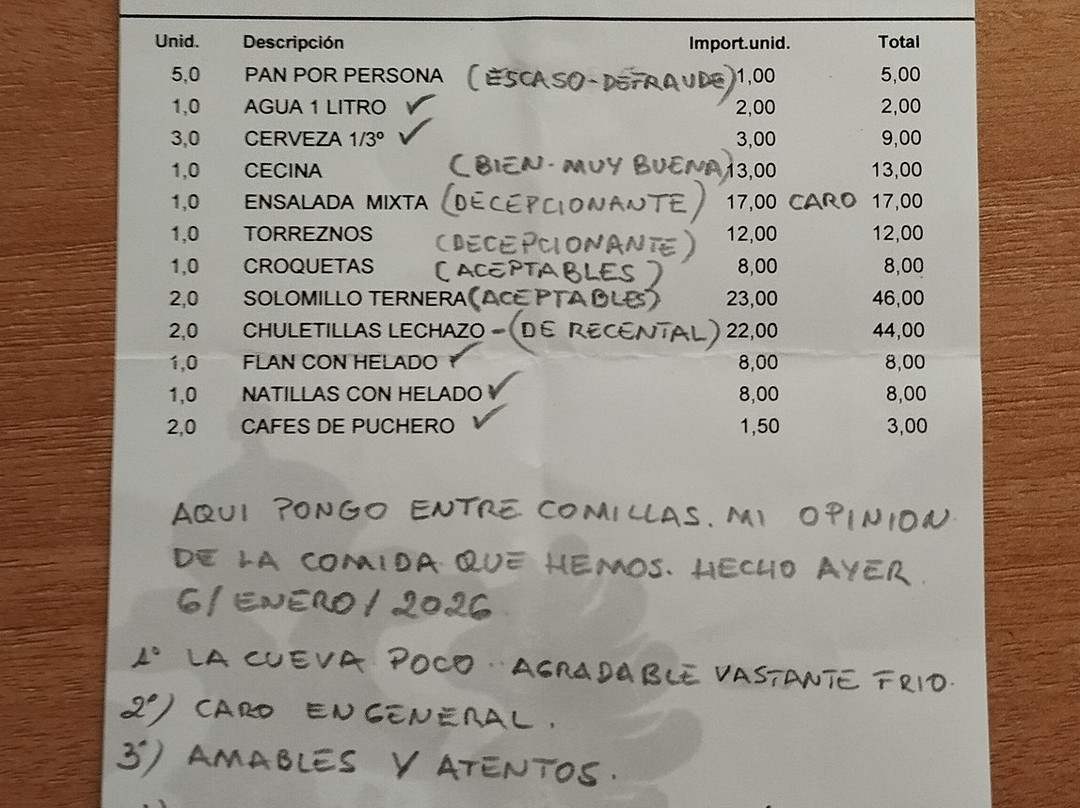 Unid. Descripción Import.unid. Total
5,0 PAN POR PERSONA (ESCASO-DEFRAUDE) 1,00 5,00
1,0 AGUA 1 LITRO ✓ 2,00 2,00
3,0 CERVEZA 1/3º ✓ 3,00 9,00
1,0 CECINA (BIEN-MUY BUENA) 13,00 13,00
1,0 ENSALADA MIXTA (DECEPCIONANTE) 17,00 CARO 17,00
1,0 TORREZNOS (DECEPCIONANTE) 12,00 12,00
1,0 CROQUETAS (ACEPTABLES) 8,00 8,00
2,0 SOLOMILLO TERNERA (ACEPTABLES) 23,00 46,00
2,0 CHULETILLAS LECHAZO -(DE RECENTAL) 22,00 44,00
1,0 FLAN CON HELADO ✓ 8,00 8,00
1,0 NATILLAS CON HELADO ✓ 8,00 8,00
2,0 CAFES DE PUCHERO ✓ 1,50 3,00
AQUI PONGO ENTRE COMILLAS. MI OPINION
DE LA COMIDA QUE HEMOS. HECHO AYER
6/ENERO/2026
1º LA CUEVA POCO AGRADABLE VASTANTE FRIO.
2º) CARO EN GENERAL.
3º) AMABLES Y ATENTOS.